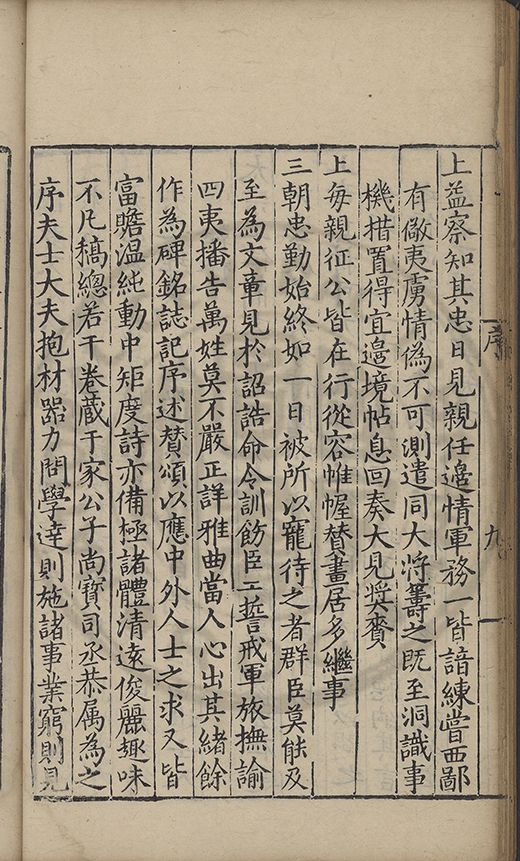 序　九
上益察知其忠日見親任邉情軍務一皆諳練嘗西鄙
有儆夷虜情偽不可測遣同大将籌之既至洞識事
機措置得宜邉境帖息回奏大見奨賚
上每親征公皆在行從容帷幄賛畫居多繼事
三朝忠勤始終如一日被所以寵待之者群臣莫能及
至為文章見於詔誥命令訓飭臣工誓戒軍旅撫諭
四夷播告萬姓莫不嚴正詳雅曲當人心出其緒餘
作為碑銘誌記序述賛頌以應中外人士之求又皆
富贍温純動中矩度詩亦備極諸體清逺俊麗趣味
不凡稿總若干卷蔵于家公子尚寳司丞恭属為之
序夫士大夫抱材噐力問學達則施諸事業窮則見